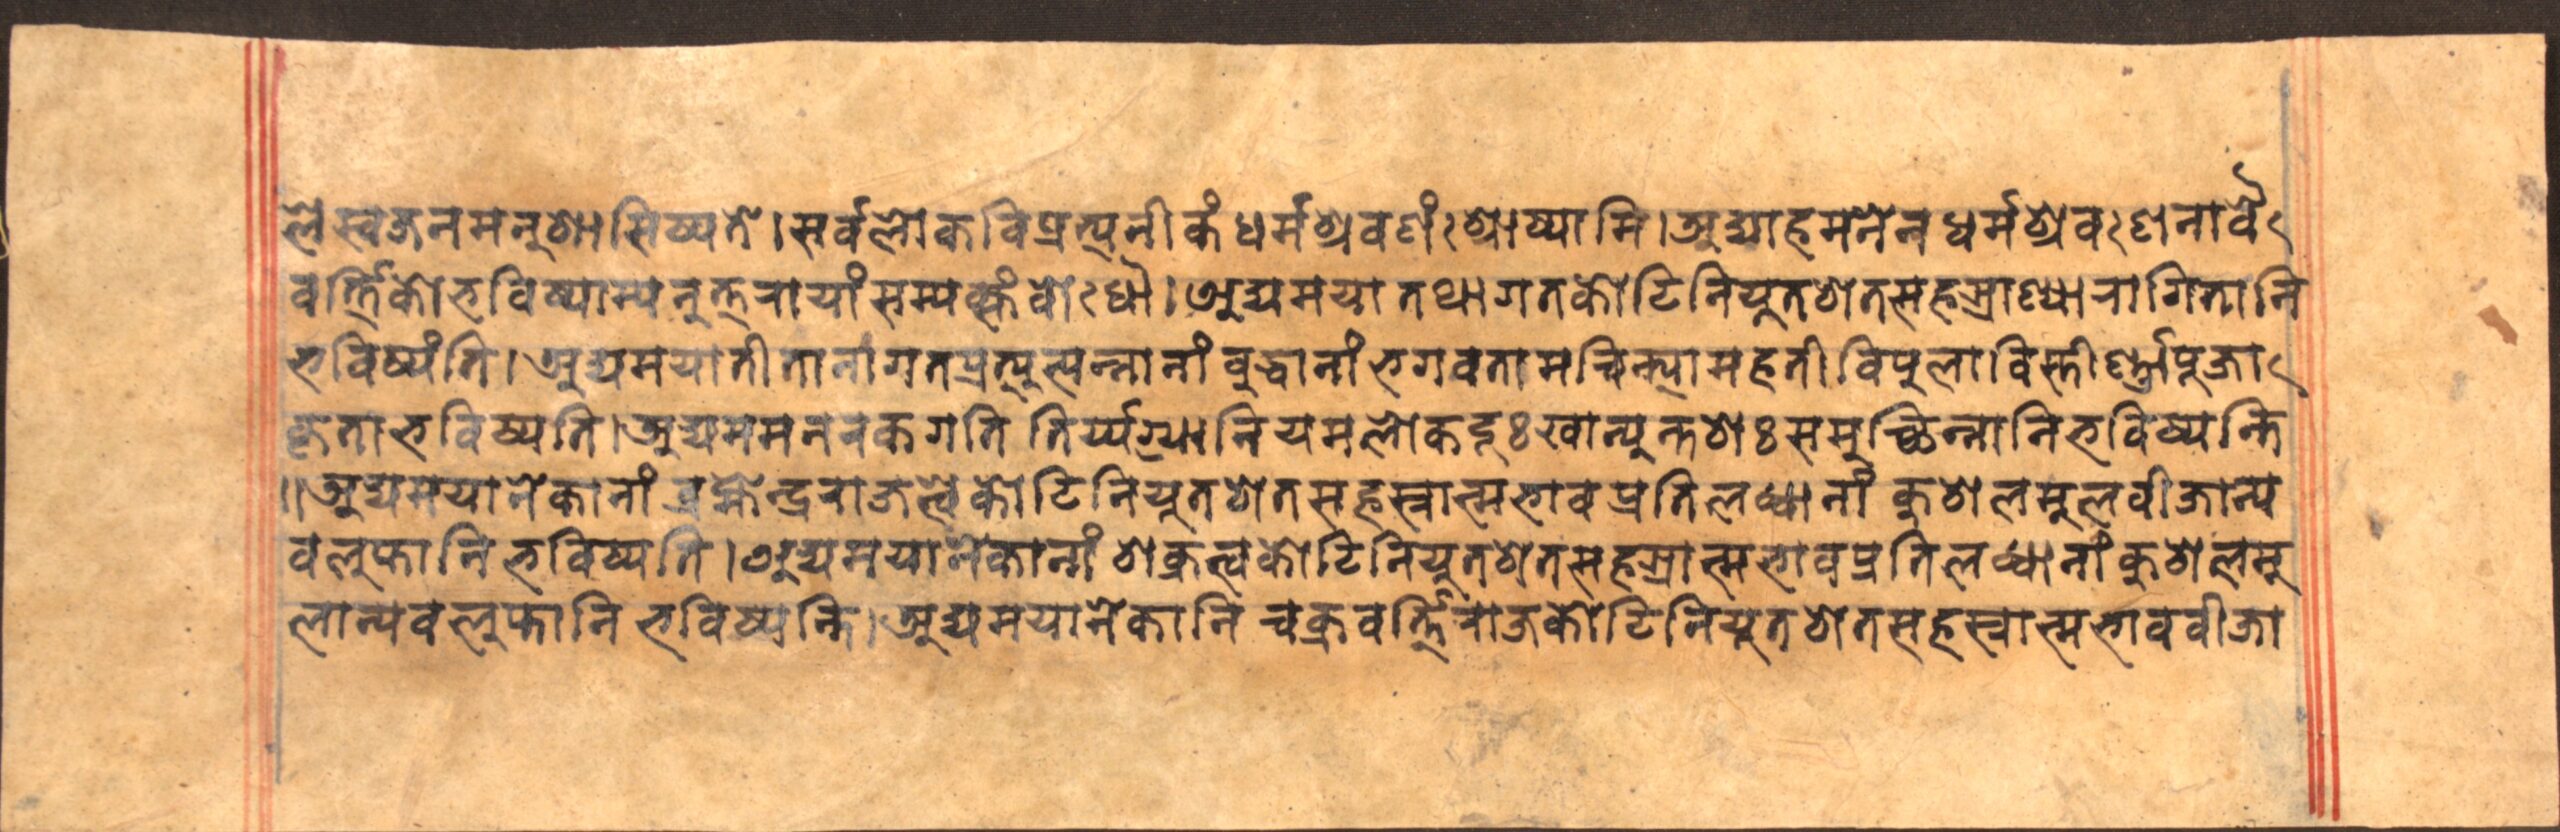 ले स्वजनमनुशासिष्यते।सर्वलोकविप्रत्यनीकं धर्मश्रवणंःश्रोष्यामि।अद्याहमनेन धर्मश्रवःणनावै
वर्त्तिको भविष्याम्यनुत्तरायां सम्यक्संबोःधौ।अद्यमया तथागतकोटिनियुतशतसहस्राण्यारागितानि
भविष्यंति।अद्यमयातीतानागतप्रत्युत्पन्नानां बुद्धानां भगवतामचिन्त्यामहतीविपुलाविस्तीर्ण्णापूजा
कृता भविष्यति।अद्यममनरकगति तिर्य्यग्योनियमलोकदूःखान्युन्तशःसमुच्छिन्नानिभविष्यन्ति
॥अद्यमयानेकानां ब्रह्मेन्द्रराजत्वेकोटिनियुतशतसहस्वात्मभावप्रतिलब्धानां कुशलमुलवीजान्य
वलुप्तानि भविष्यति।अद्यमयानेकानां शक्रत्वकोटिनियुतशतसहस्रात्मभावप्रतिलब्धानां कुशलमु
लान्यवलुप्तानि भविष्यन्ति।अद्यमयानेकानि चक्रवर्त्तिराजकोटिनियुतशतसहस्वात्मभाववीजा